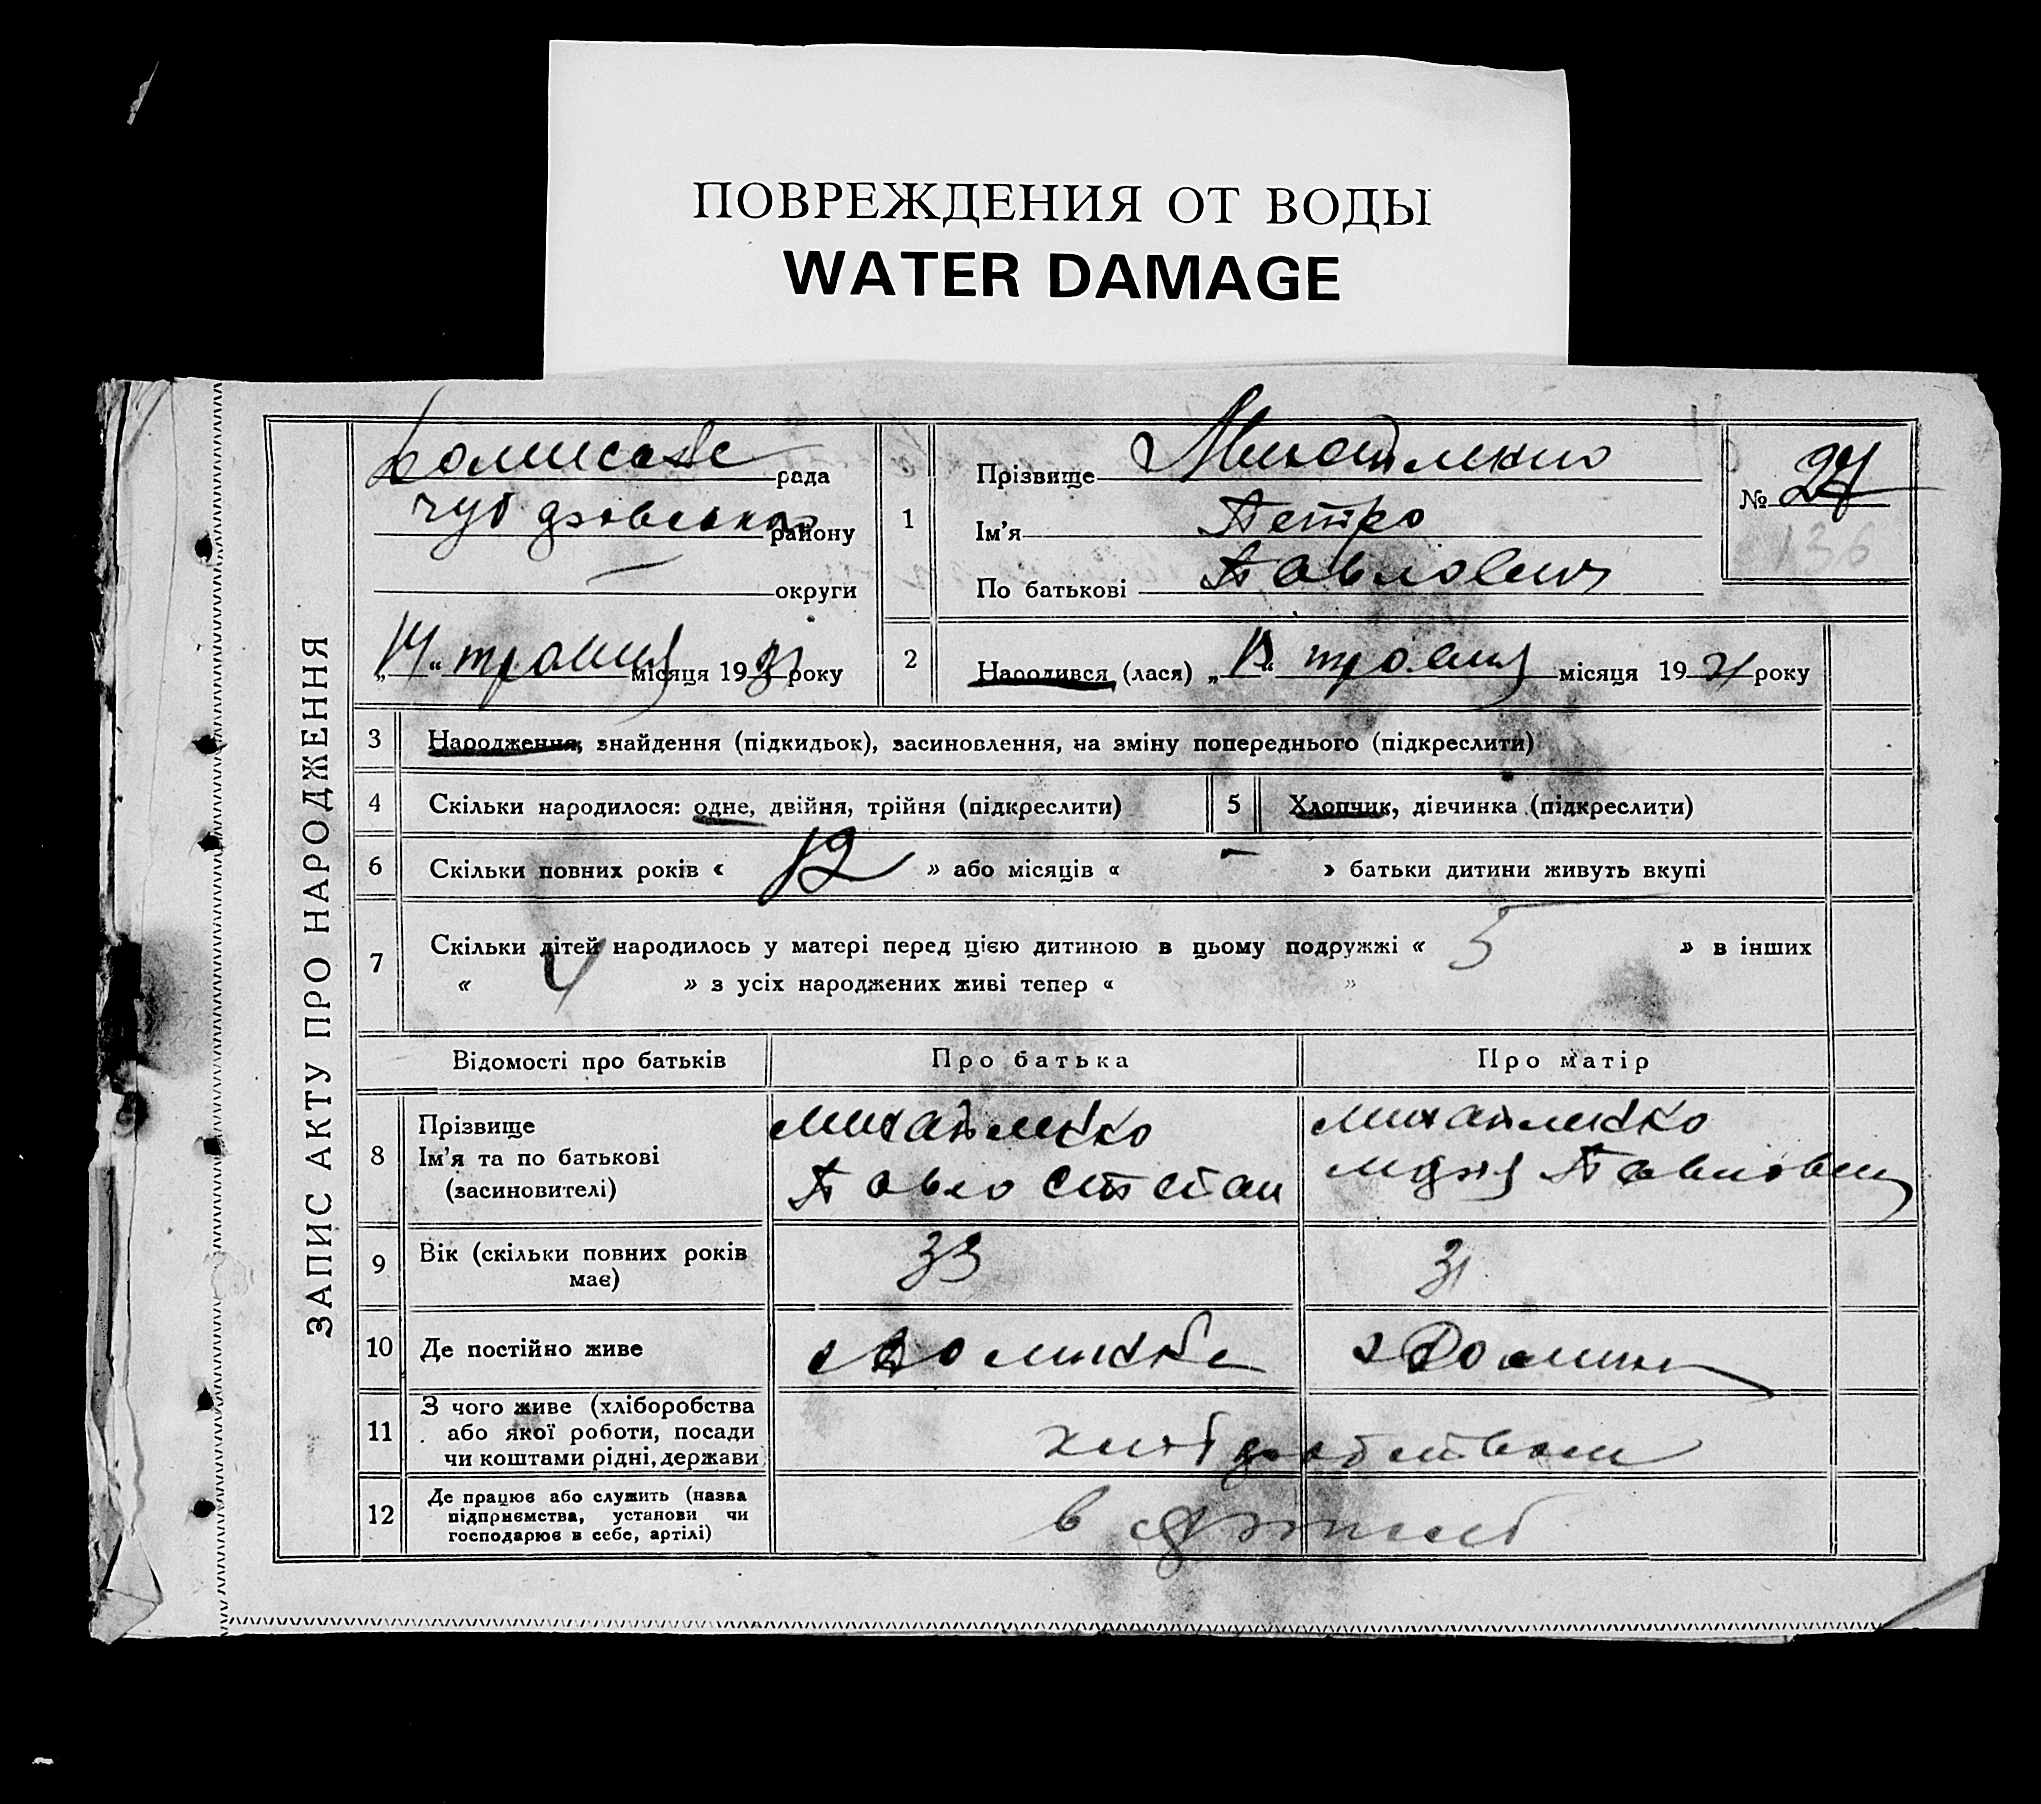 ПОВРЕЖДЕНИЯ ОТ ВОДЫ
WATER DAMAGE
ЗАПИС АКТУ ПРО НАРОДЖЕННЯ
рада
району
округи
„14“ травня місяця 1931 року
1
Прізвище Михайленко
Ім'я Петро
По батькові Павлович
№ 27
136
2 Народився (лася) „ “ травня місяця 1931 року
3 Народження, знайдення (підкидьок), засиновлення, на зміну попереднього (підкреслити)
4 Скільки народилося: одне, двійня, трійня (підкреслити)
5 Хлопчик, дівчинка (підкреслити)
6 Скільки повних років « 12 » або місяців « – » батьки дитини живуть вкупі
7 Скільки дітей народилось у матері перед цією дитиною в цьому подружжі « 5 » в інших
« 4 » з усіх народжених живі тепер « »
Відомості про батьків
Про батька
Про матір
8 Прізвище
Ім'я та по батькові
(засиновителі)
Михайленко
Павло Степан
Михайленко
9 Вік (скільки повних років
має)
33
31
10 Де постійно живе
11 З чого живе (хліборобства
або якої роботи, посади
чи коштами рідні, держави
хліборобством
12 Де працює або служить (назва
підприємства, установи чи
господарює в себе, артілі)
в артілі